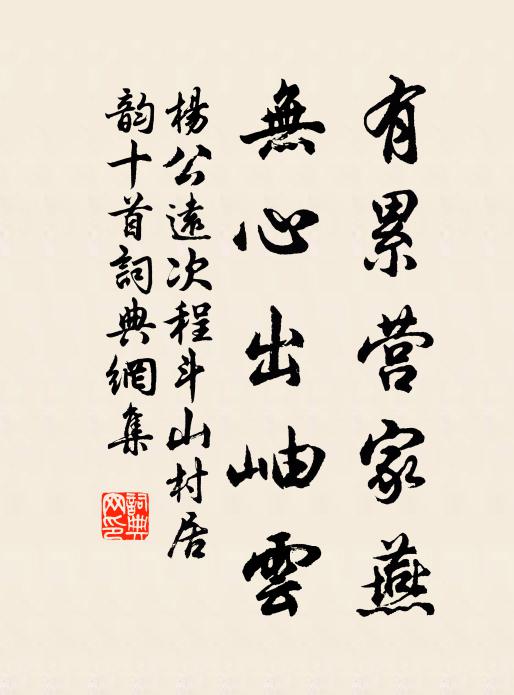 有累营家燕
無心出岫雲
楊公遠次程斗山村居
韵十首詞典網集
詞典网印